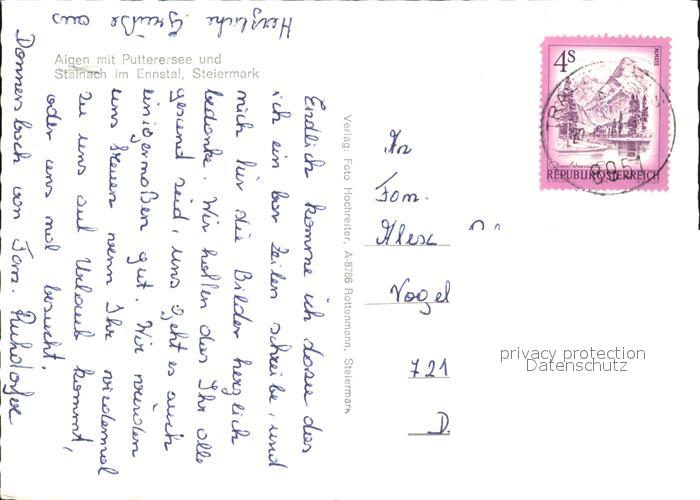 Aigen mit Putterersee und
Stainach im Ennstal, Steiermark
Endlich komme ich dazu das
ich ein bar Zeilen schreibe, und
mich für die Bilder herzlich
bedanke. Wir hoffen das Ihr alle
gesund seid, uns geht es auch
einigermaßen gut. Wir würden
uns freuen wenn Ihr wiedermal
zu uns auf Urlaub kommt,
oder uns mal besucht.
Herzliche Grüße aus
Donnersbach von Fam.
Verlag: Foto Hochreiter, A-8786 Rottenmann, Steiermark
An
Fam.
Alex
Vogel
721
D.
4S
ALMSEE
REPUBLIK ÖSTERREICH
8951
privacy protection
Datenschutz